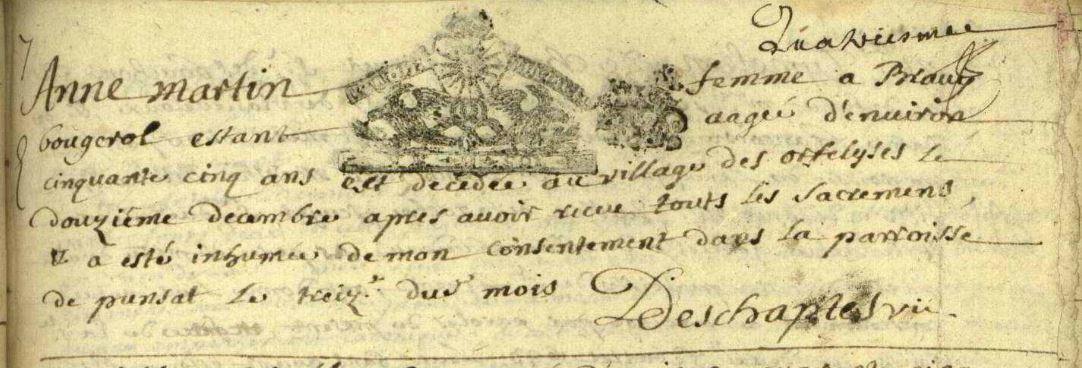 Quatriesme
Anne martin femme a
bougerol estant aagée d'environ
cinquante cinq ans est decedée au village des le
douzieme decembre apres avoir receu touts les sacremens,
a esté inhumée de mon consentement dans la parroisse
de punsat le treiz.e dud mois Deschaptes